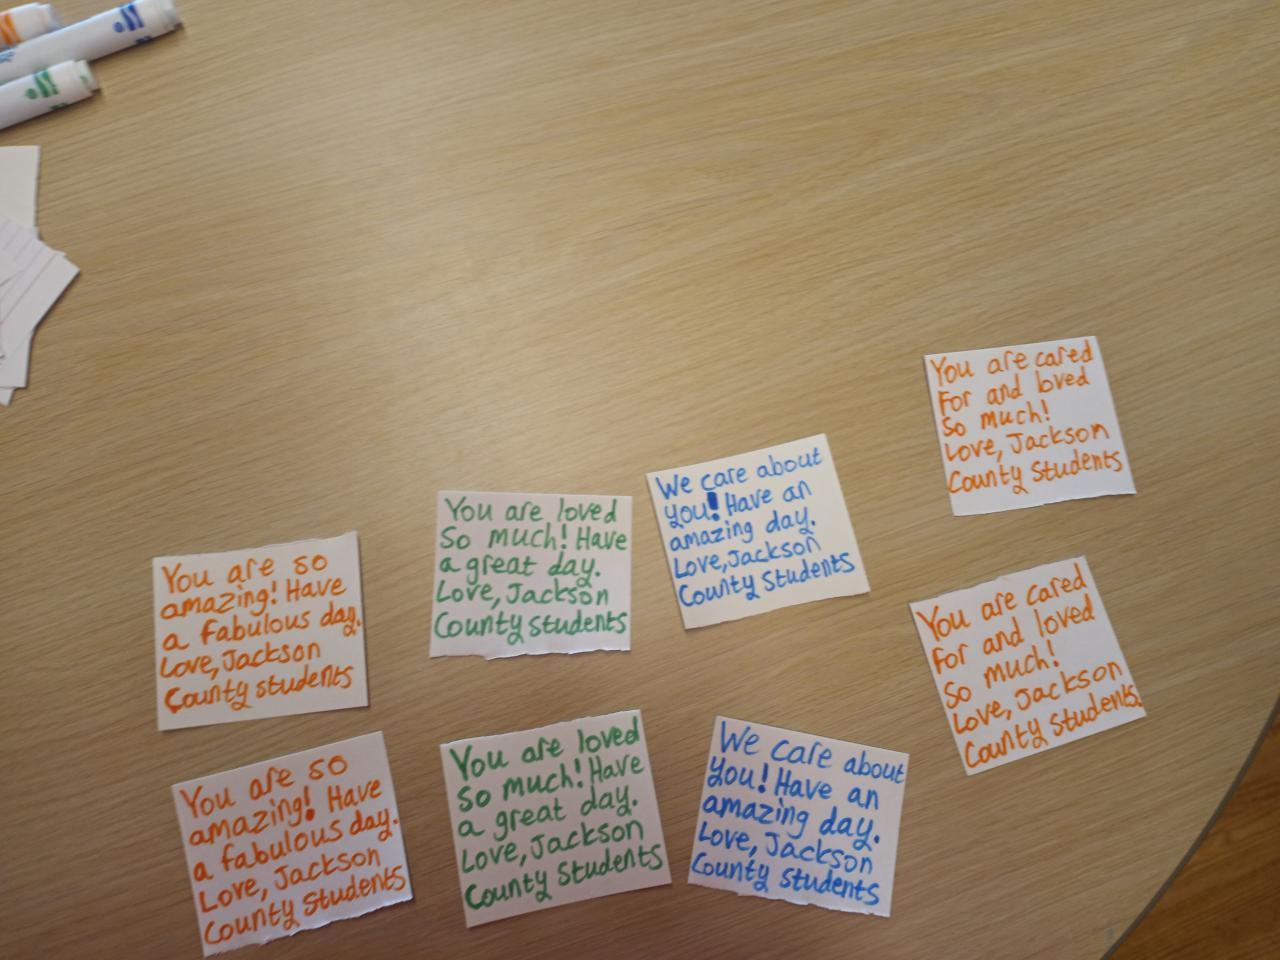 You are so
amazing! Have
a fabulous day.
Love, Jackson
County students
You are loved
So much! Have
a great day.
Love, Jackson
County students
We care about
you! Have an
amazing day.
Love, Jackson
County Students
You are cared
For and loved
So much!
Love, Jackson
County Students
You are so
amazing! Have
a fabulous day.
Love, Jackson
County Students
You are loved
so much! Have
a great day.
Love, Jackson
County Students
We care about
you! Have an
amazing day.
Love, Jackson
County Students
You are cared
for and loved
so much!
Love, Jackson
County Students.